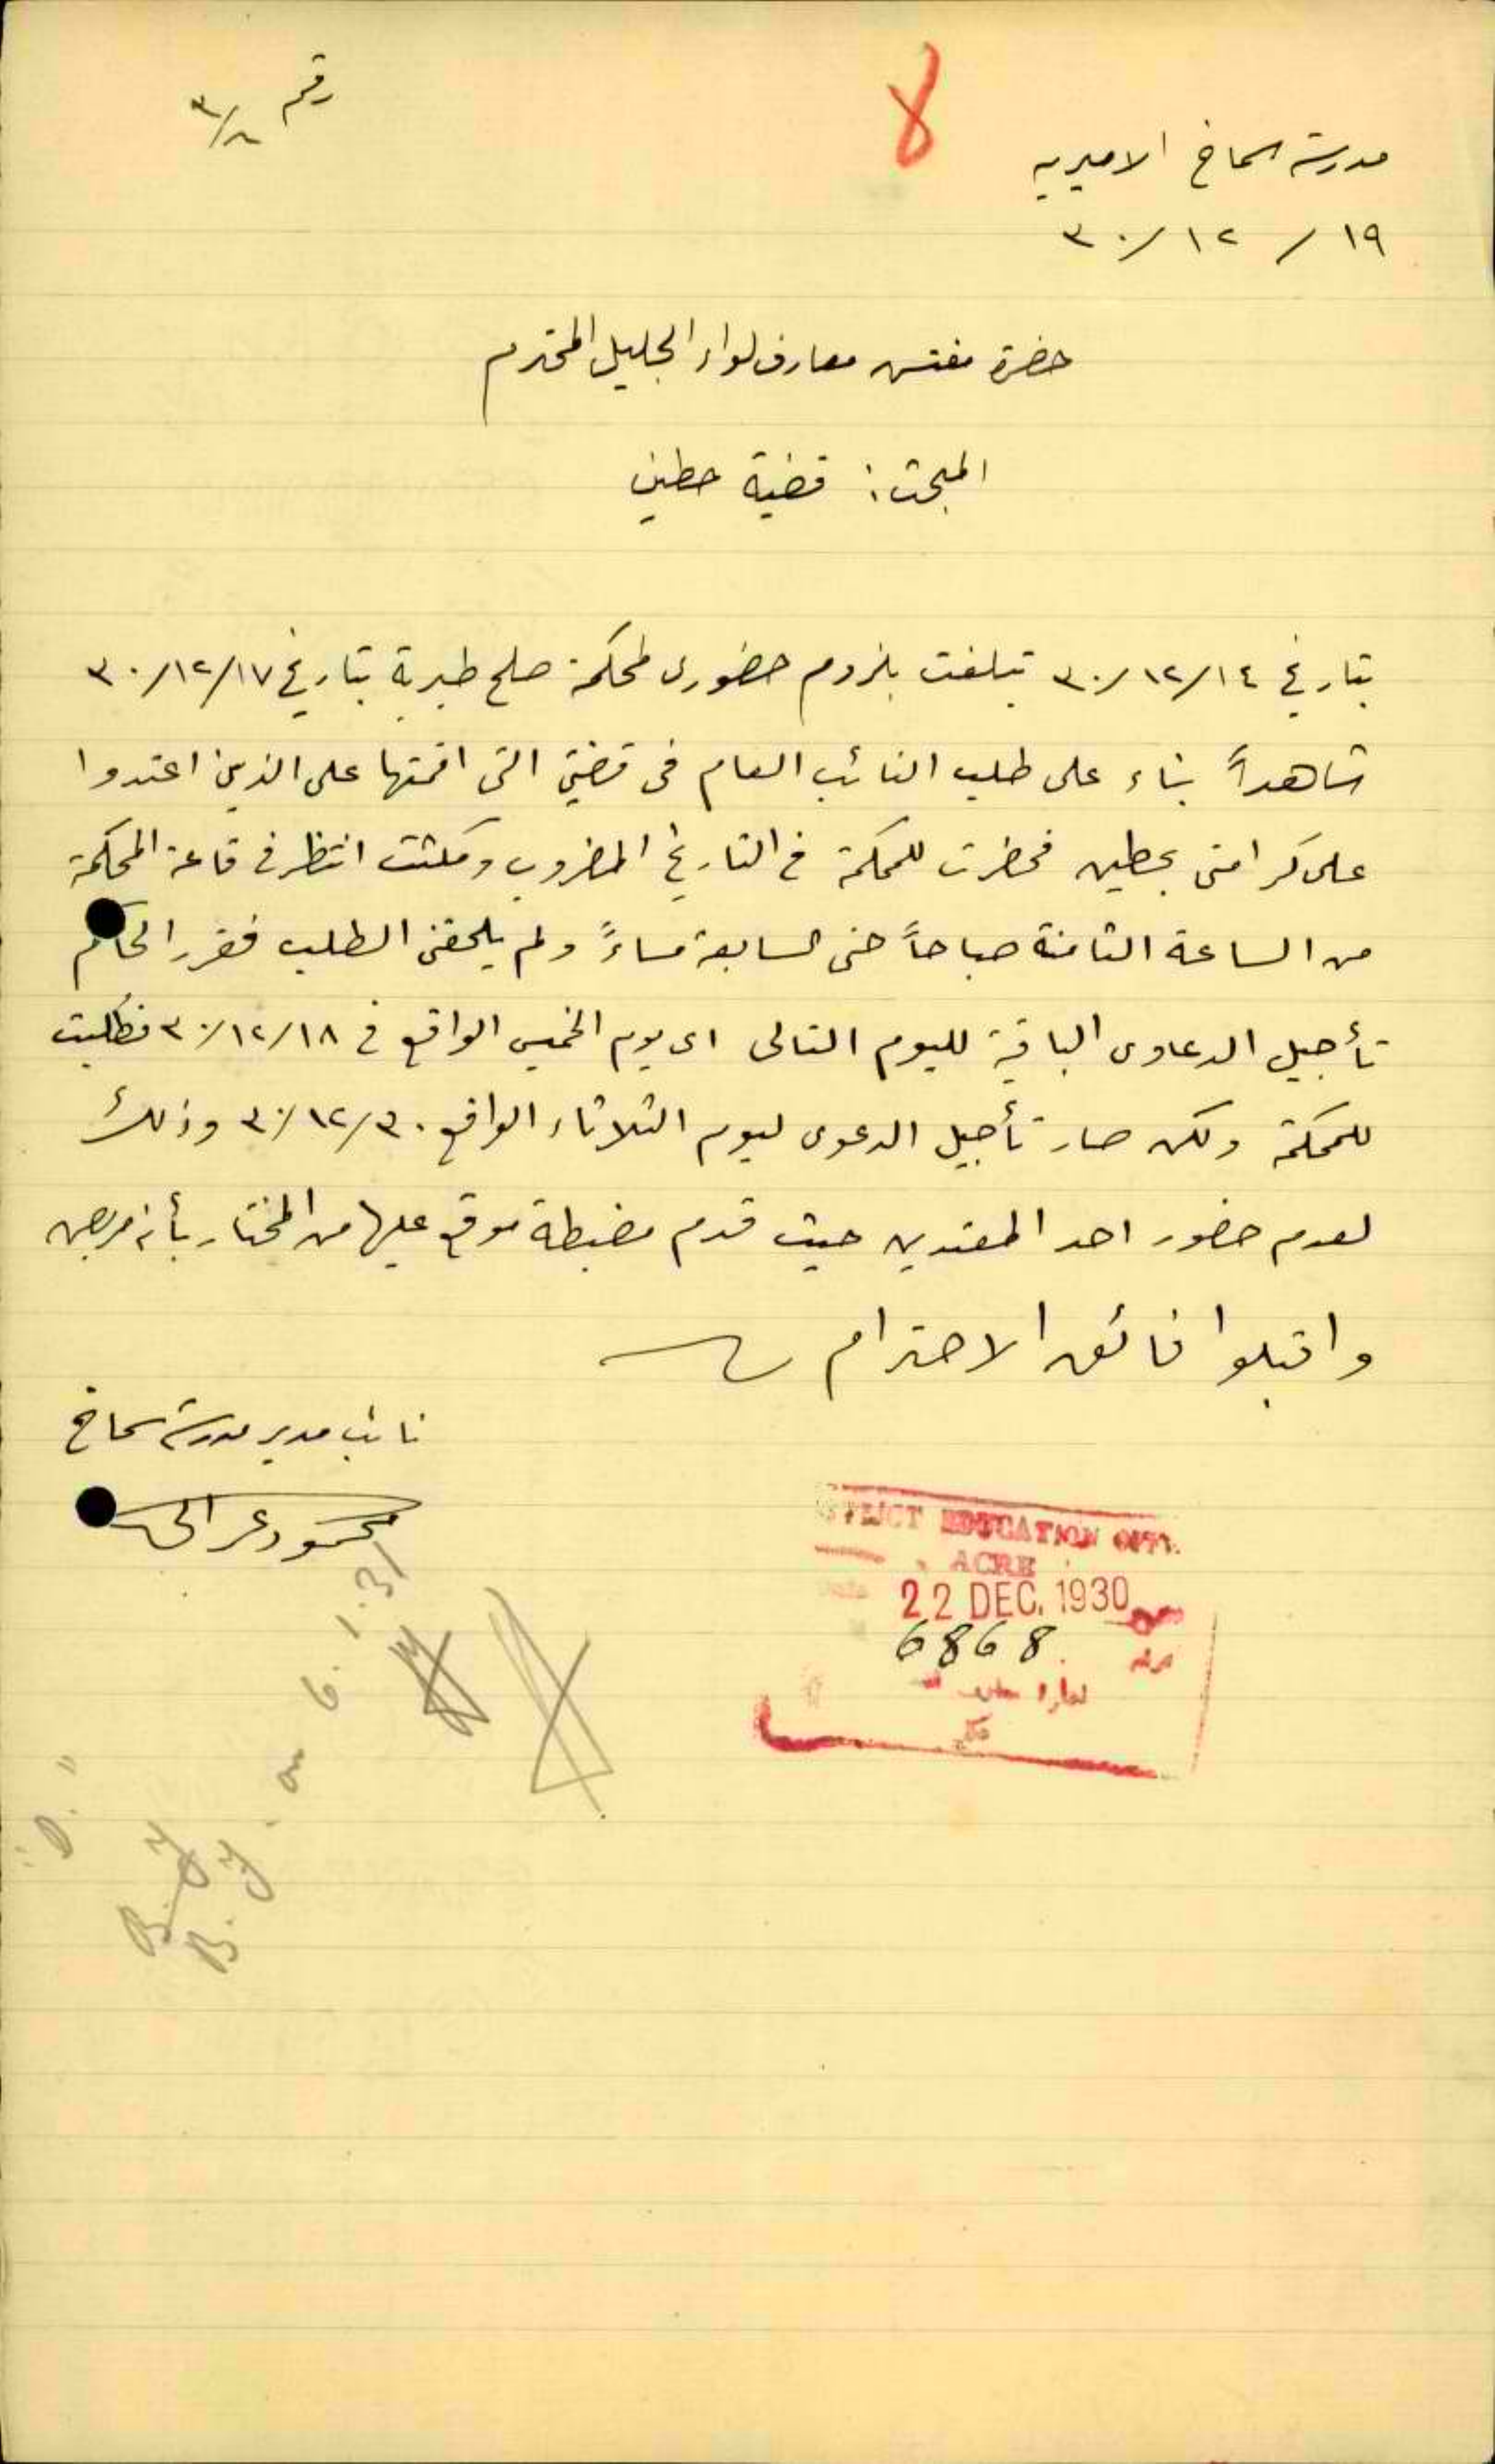 رقم
8
مدرسة سماخ الاميرية
١٩ / ١٢ / ٣٠
حضرة مفتش معارف لواء الجليل المحترم
المبحث : قضية حطين
بتاريخ ١٤/١٢/٣٠ تبلغت بلزوم حضوري لمحكمة صلح طبرية بتاريخ ١٧/١٢/٣٠
شاهداً بناء على طلب النائب العام في قضيتي التي اقمتها على الذين اعتدوا
على كرامتي بحطين فحضرت للمحكمة في التاريخ المضروب ومكثت انتظر في قاعة المحكمة
من الساعة الثامنة صباحاً حتى السابعة مساءً ولم يلحقني الطلب فقرر الحاكم
تأجيل الدعاوى الباقية لليوم التالي اي يوم الخميس الواقع في ١٨/١٢/٣٠ فطلبت
للمحكمة ولكن صار تأجيل الدعوى ليوم الثلاثاء الواقع ٣٠/١٢/٣٠ وذلك
لعدم حضور احد المعتدين حيث قدم مضبطة موقع عليها من المختار بأنه مريض
واقبلوا فائق الاحترام
نائب مدير مدرسة سماخ
محمود
DISTRICT EDUCATION OFF.
ACRE
22 DEC. 1930
6868
B.y
B.y. on 6.1.31